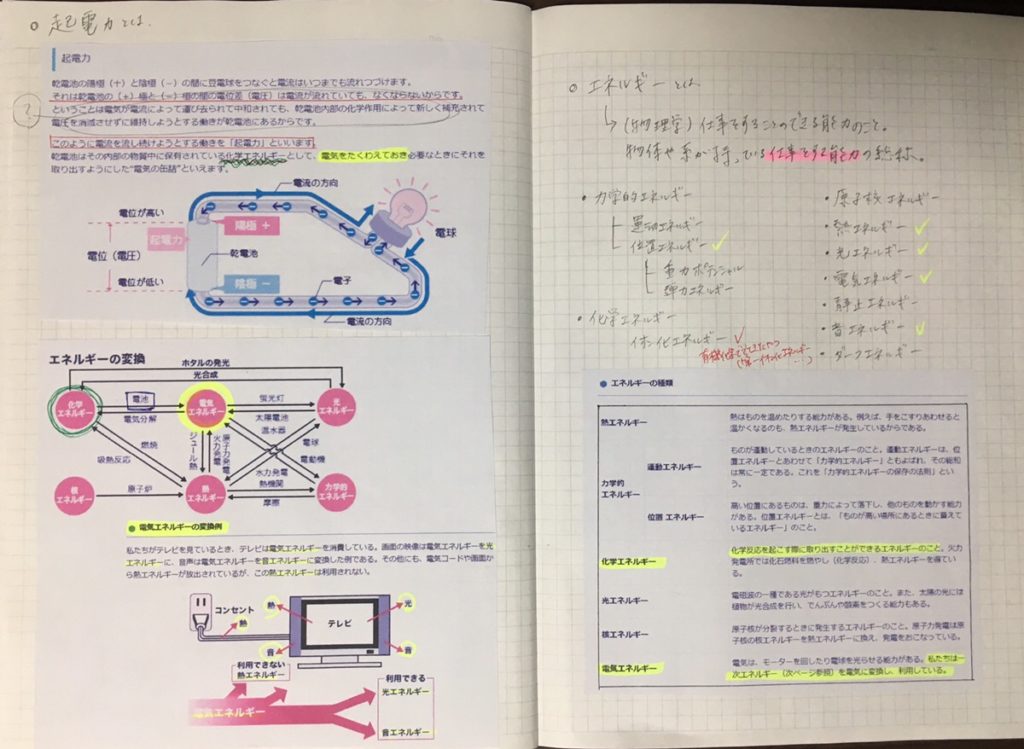 ○ 起電力とは、
起電力
乾電池の陽極(+)と陰極(−)の間に豆電球をつなぐと電流はいつまでも流れつづけます。
それは乾電池の(+)極と(−)極の間の電位差(電圧)は電流が流れていても、なくならないからです。
?
ということは電気が電流によって運び去られて中和されても、乾電池内部の化学作用によって新しく補充されて
電圧を消滅させずに維持しようとする働きが乾電池にあるからです。
このように電流を流し続けようとする働きを「起電力」といいます。
乾電池はその内部の物質中に保有されている化学エネルギーとして、電気をたくわえておき必要なときにそれを
取り出すようにした"電気の缶詰"といえます。
電流の方向
電位が高い
陽極 +
起電力
電球
電位(電圧)
乾電池
電位が低い
陰極 −
電子
電流の方向
エネルギーの変換
ホタルの発光
光合成
化学
エネルギー
電池
電気分解
電気
エネルギー
蛍光灯
太陽電池
光
エネルギー
温水器
燃焼
吸熱反応
ジュール熱
火力発電
原子力発電
電球
電動機
核
エネルギー
原子炉
熱
エネルギー
水力発電
熱機関
摩擦
力学的
エネルギー
● 電気エネルギーの変換例
私たちがテレビを見ているとき、テレビは電気エネルギーを消費している。画面の映像は電気エネルギーを光
エネルギーに、音声は電気エネルギーを音エネルギーに変換した例である。その他にも、電気コードや画面か
ら熱エネルギーが放出されているが、この熱エネルギーは利用されない。
コンセント
熱
熱
テレビ
光
音
音
利用できない
熱エネルギー
利用できる
光エネルギー
電気エネルギー
音エネルギー
○ エネルギーとは
(物理学) 仕事をすることのできる能力のこと。
物体や系が持っている仕事をする能力の総称。
・力学的エネルギー
運動エネルギー
位置エネルギー ✓
重力ポテンシャル
弾力エネルギー
・化学エネルギー
イオン化エネルギー ✓
・原子核エネルギー
・熱エネルギー ✓
・光エネルギー ✓
・電気エネルギー ✓
・静止エネルギー
・音エネルギー ✓
・ダークエネルギー
● エネルギーの種類
熱エネルギー
熱はものを温めたりする能力がある。例えば、手をこすりあわせると
温かくなるのも、熱エネルギーが発生しているからである。
力学的
エネルギー
運動エネルギー
ものが運動しているときのエネルギーのこと。運動エネルギーは、位
置エネルギーとあわせて「力学的エネルギー」ともよばれ、その総和
は常に一定である。これを「力学的エネルギーの保存の法則」とい
う。
位置 エネルギー
高い位置にあるものは、重力によって落下し、他のものを動かす能力
がある。位置エネルギーとは、「ものが高い場所にあるときに蓄えて
いるエネルギー」のこと。
化学エネルギー
化学反応を起こす際に取り出すことができるエネルギーのこと。火力
発電所では化石燃料を燃やし(化学反応)、熱エネルギーを得てい
る。
光エネルギー
電磁波の一種である光がもつエネルギーのこと。また、太陽の光には
植物が光合成を行い、でんぷんや酸素をつくる能力もある。
核エネルギー
原子核が分裂するときに発生するエネルギーのこと。原子力発電は原
子核の核エネルギーを熱エネルギーに換え、発電をおこなっている。
電気エネルギー
電気は、モーターを回したり電球を光らせる能力がある。私たちは一
次エネルギー(次ページ参照)を電気に変換し、利用している。